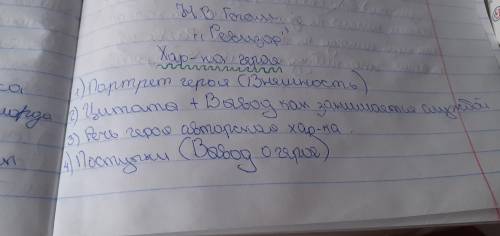 Н. В. Гоголь
„Ревизор"
Хар-ка героя
1) Портрет героя (Внешность)
2) Цитата + Вывод как занимается службой
3) Речь героя авторская хар-ка
4) Поступки (Вывод о герое)